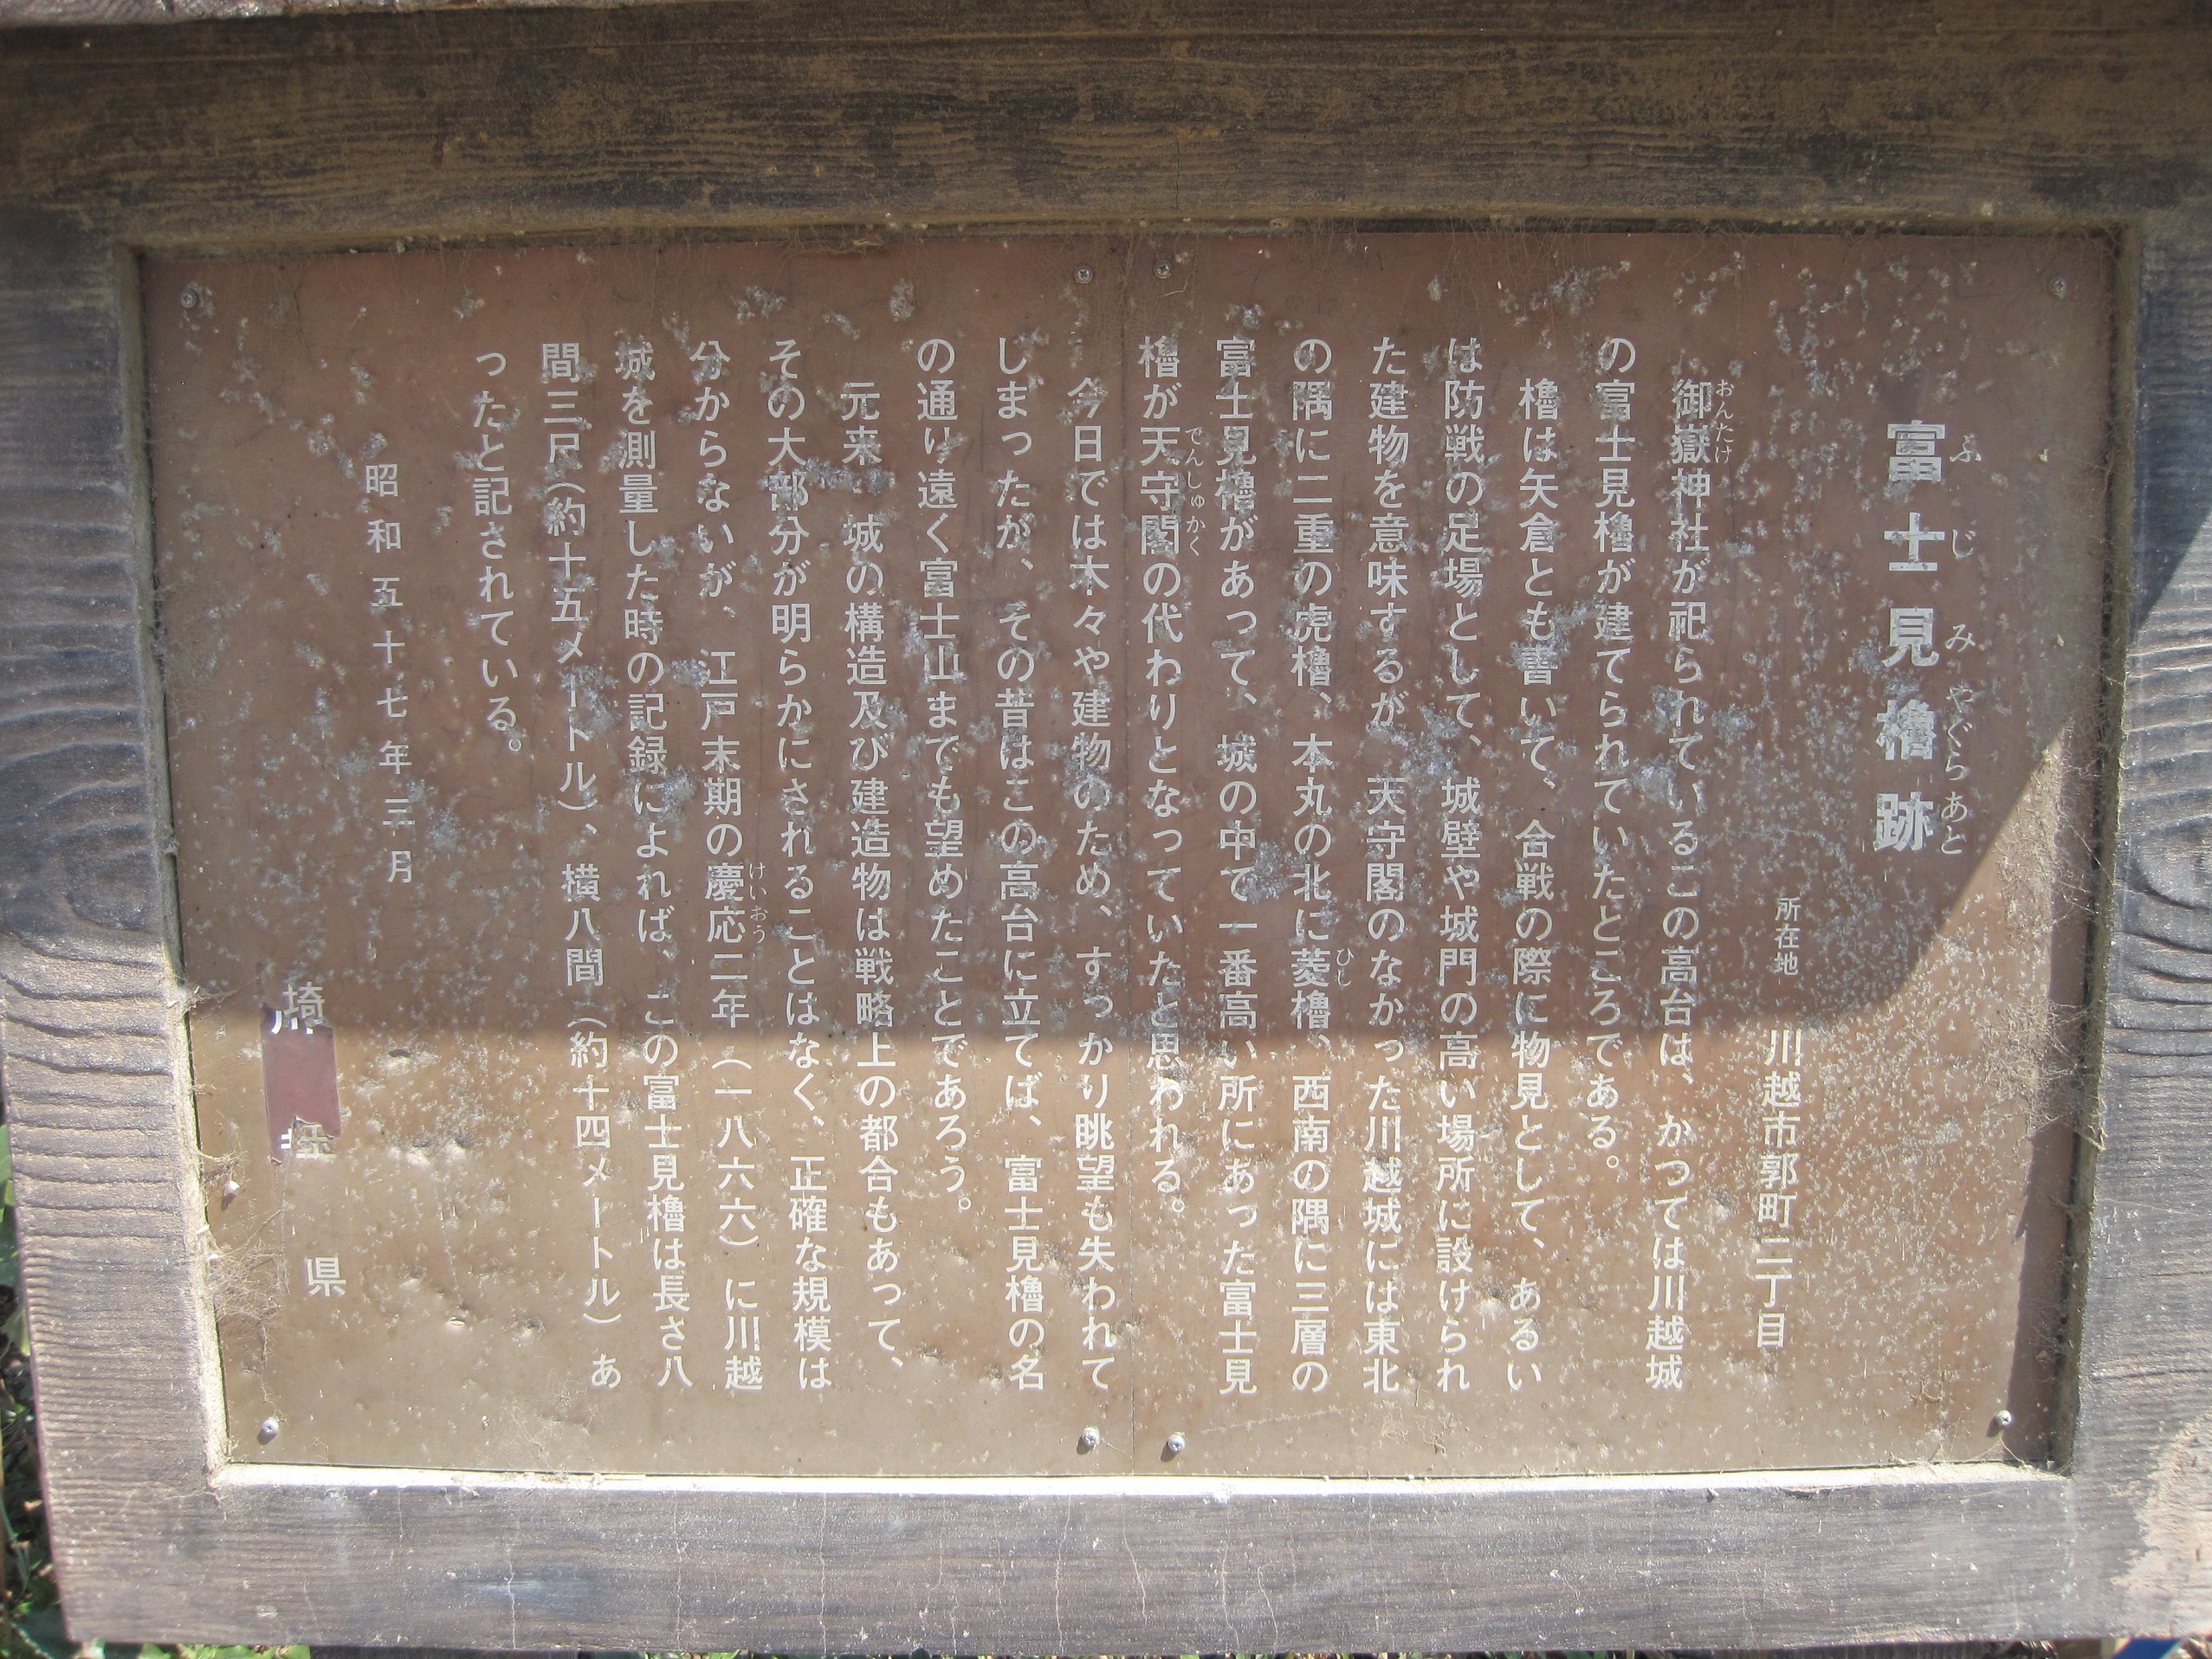 富士見櫓跡
ふじみやぐらあと
所在地 川越市郭町二丁目
御嶽神社が祀られているこの高台は、かつては川越城
おんたけ
の富士見櫓が建てられていたところである。
櫓は矢倉とも書いて、合戦の際に物見として、あるい
は防戦の足場として、城壁や城門の高い場所に設けられ
た建物を意味するが、天守閣のなかった川越城には東北
の隅に二重の虎櫓、本丸の北に菱櫓、西南の隅に三層の
ひし
富士見櫓があって、城の中で一番高い所にあった富士見
櫓が天守閣の代わりとなっていたと思われる。
でんしゅかく
今日では木々や建物のため、すっかり眺望も失われて
しまったが、その昔はこの高台に立てば、富士見櫓の名
の通り遠く富士山までも望めたことであろう。
元来、城の構造及び建造物は戦略上の都合もあって、
その大部分が明らかにされることはなく、正確な規模は
分からないが、江戸末期の慶応二年（一八六六）に川越
けいおう
城を測量した時の記録によれば、この富士見櫓は長さ八
間三尺（約十五メートル）、横八間（約十四メートル）あ
ったと記されている。
昭和五十七年三月
埼 県